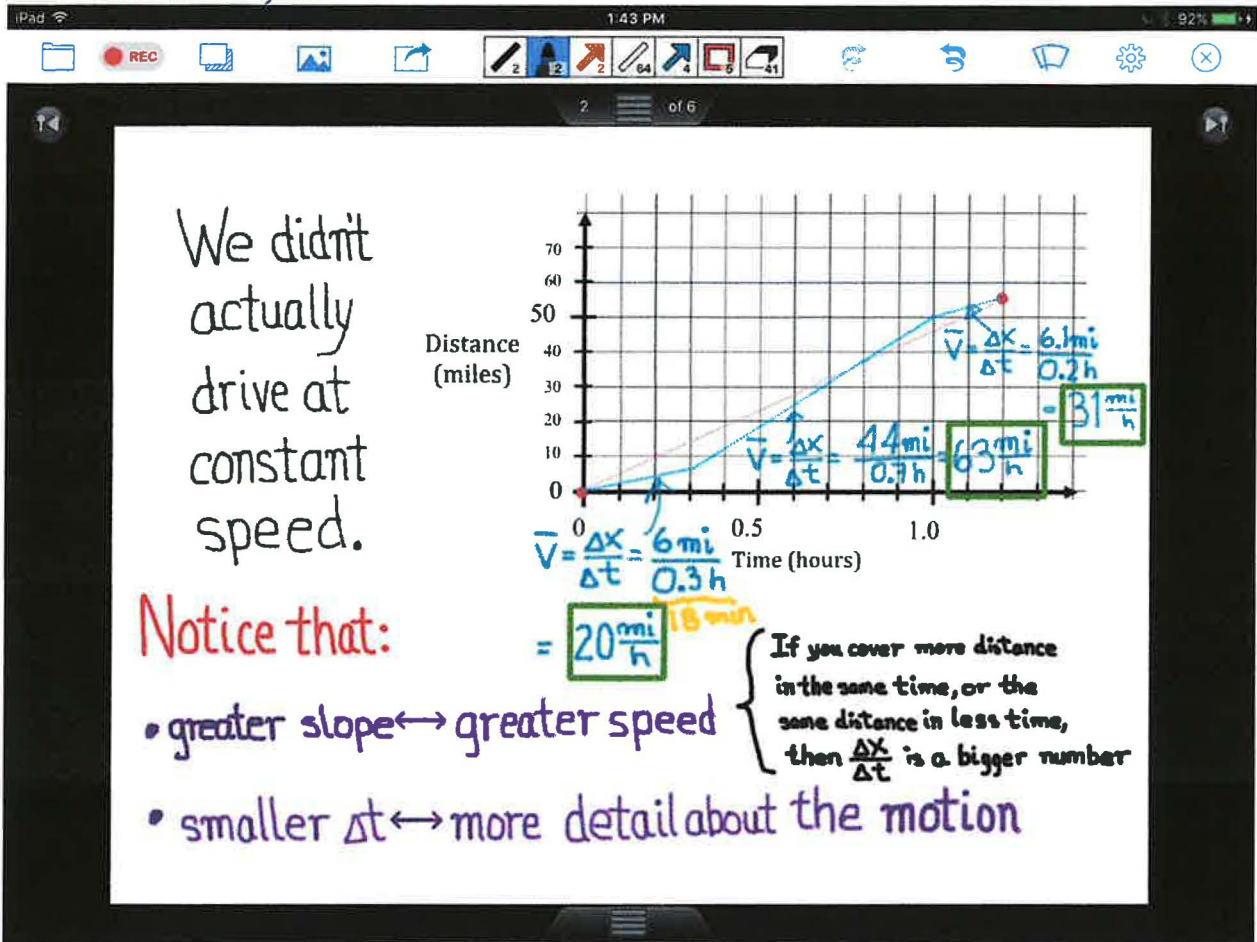 iPad 1:43 PM 92%
REC 2 2 2 64 4 5 41
2 of 6
We didn't
actually
drive at
constant
speed.
Distance
(miles)
70
60
50
40
30
20
10
0
0 0.5 1.0
Time (hours)
V̅ = Δx/Δt = 6.1mi/0.2h
= 31 mi/h
V̅ = Δx/Δt = 44mi/0.7h = 63 mi/h
V̅ = Δx/Δt = 6mi/0.3h
18 min
= 20 mi/h
Notice that:
• greater slope ↔ greater speed
If you cover more distance
in the same time, or the
same distance in less time,
then Δx/Δt is a bigger number
• smaller Δt ↔ more detail about the motion